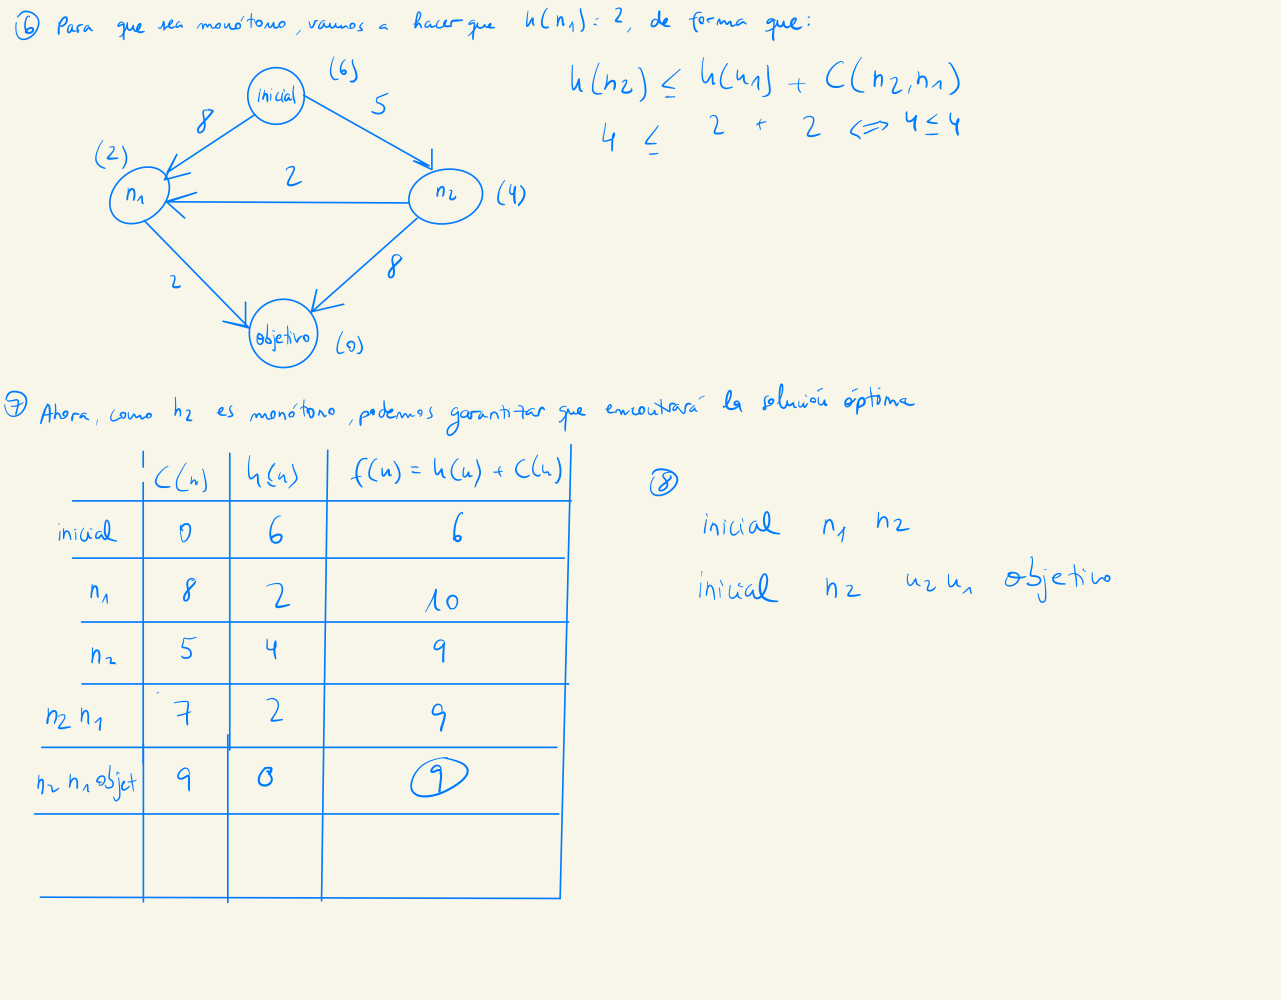 ⑥ Para que sea monótono, vamos a hacer que h(n1) = 2, de forma que:
h(n2) ≤ h(n1) + C(n2, n1)
4 ≤ 2 + 2 <=> 4 ≤ 4
(6)
inicial
8
5
(2)
n1
2
n2
(4)
2
8
objetivo
(0)
⑦ Ahora, como h2 es monótono, podemos garantizar que encontrará la solución óptima
C(n) h(n) f(n) = h(n) + C(n)
inicial 0 6 6
n1 8 2 10
n2 5 4 9
n2 n1 7 2 9
n2 n1 objet 9 0 9
⑧
inicial n1 n2
inicial n2 n2 n1 objetivo